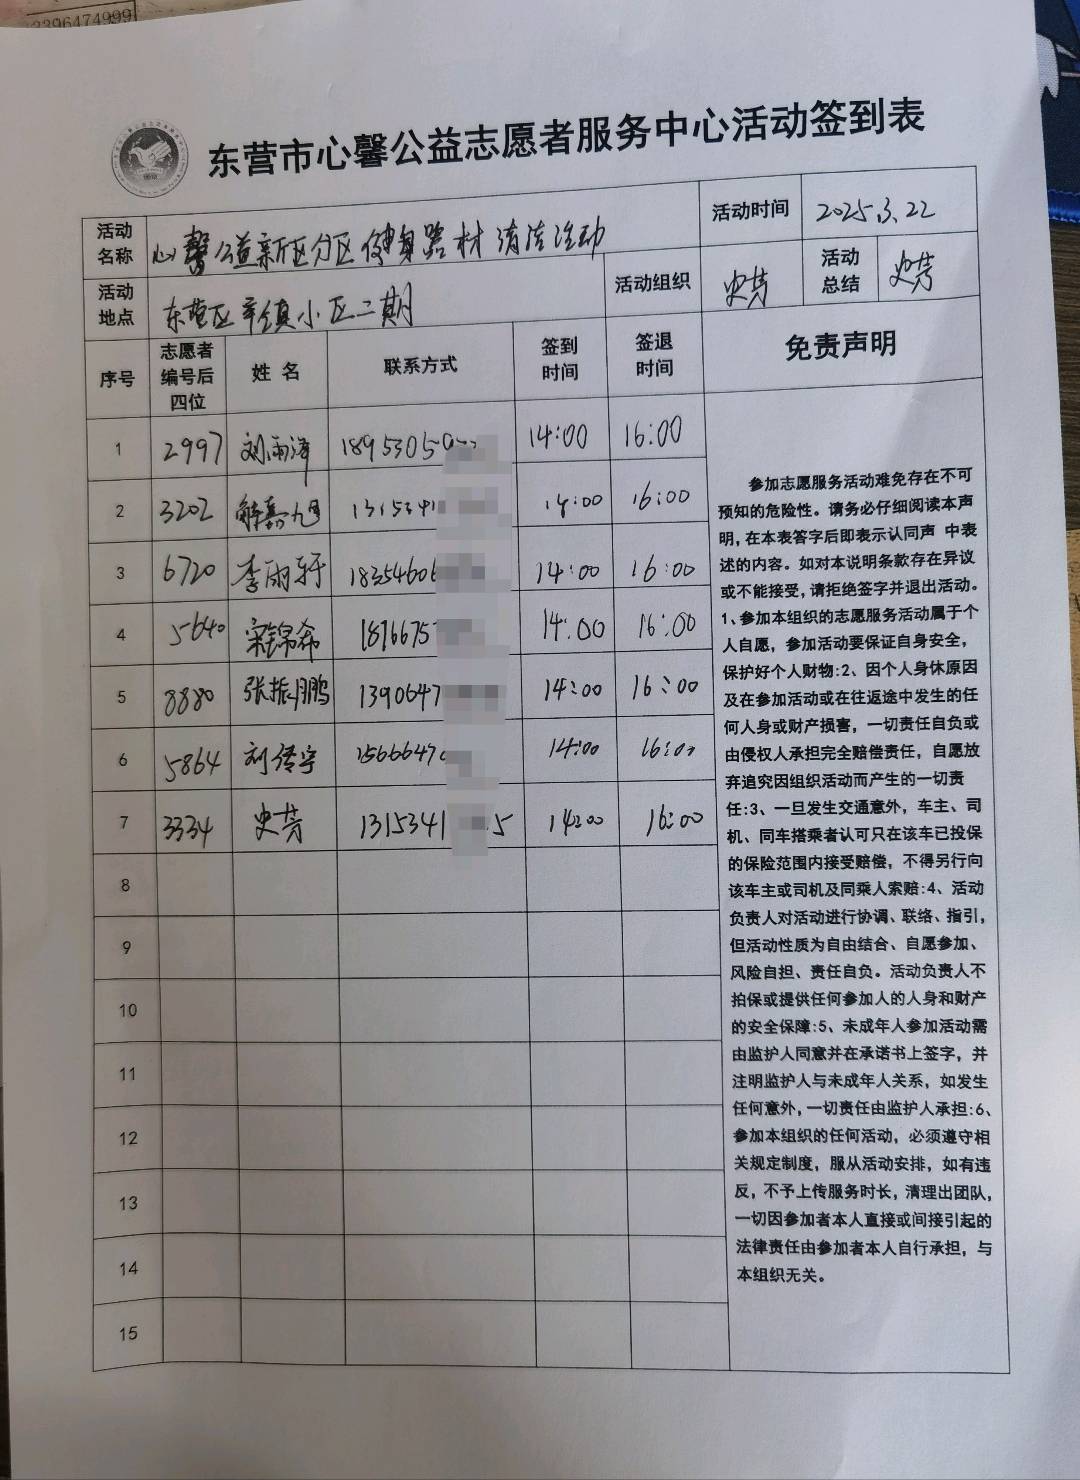 2396474999
东营市心馨公益志愿者服务中心活动签到表
活动名称 心馨公益新区分区健身器材清洁活动 活动时间 2025.3.22
活动地点 东营区辛镇小区二期 活动组织 史芳 活动总结 史芳
序号 志愿者编号后四位 姓名 联系方式 签到时间 签退时间 免责声明
1 2997 刘雨泽 1895305 14:00 16:00
2 3202 解嘉旭 1315341 14:00 16:00
3 6720 李雨轩 18354606 14:00 16:00
4 5640 宋锦希 1876675 14:00 16:00
5 8880 张振鹏 1390647 14:00 16:00
6 5864 刘传宇 1566647 14:00 16:00
7 3334 史芳 1315341 5 14:00 16:00
8
9
10
11
12
13
14
15
参加志愿服务活动难免存在不可
预知的危险性。请务必仔细阅读本声
明,在本表签字后即表示认同声 中表
述的内容。如对本说明条款存在异议
或不能接受,请拒绝签字并退出活动。
1、参加本组织的志愿服务活动属于个
人自愿，参加活动要保证自身安全，
保护好个人财物:2、因个人身体原因
及在参加活动或在往返途中发生的任
何人身或财产损害，一切责任自负或
由侵权人承担完全赔偿责任，自愿放
弃追究因组织活动而产生的一切责
任:3、一旦发生交通意外，车主、司
机、同车搭乘者认可只在该车已投保
的保险范围内接受赔偿，不得另行向
该车主或司机及同乘人索赔:4、活动
负责人对活动进行协调、联络、指引，
但活动性质为自由结合、自愿参加、
风险自担、责任自负。活动负责人不
担保或提供任何参加人的人身和财产
的安全保障:5、未成年人参加活动需
由监护人同意并在承诺书上签字，并
注明监护人与未成年人关系，如发生
任何意外,一切责任由监护人承担:6、
参加本组织的任何活动，必须遵守相
关规定制度，服从活动安排，如有违
反，不予上传服务时长，清理出团队，
一切因参加者本人直接或间接引起的
法律责任由参加者本人自行承担，与
本组织无关。